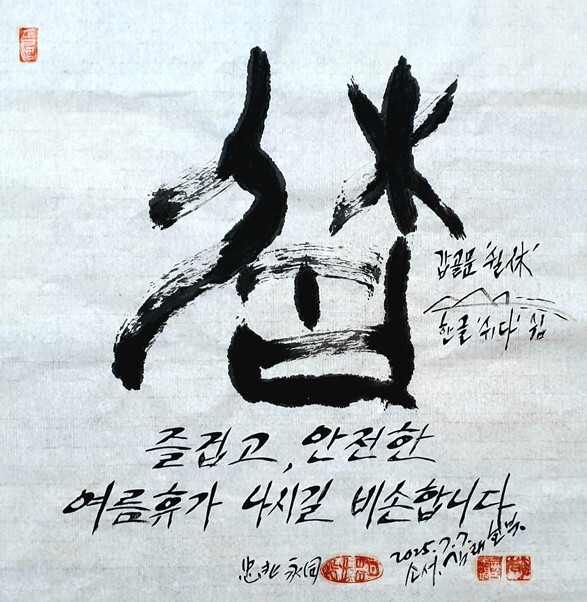 갑골문 '쉴休'
한글 '쉬다' 쉼
즐겁고, 안전한
여름휴가 나시길 비손합니다.
忠北 永同
2025.7.7.